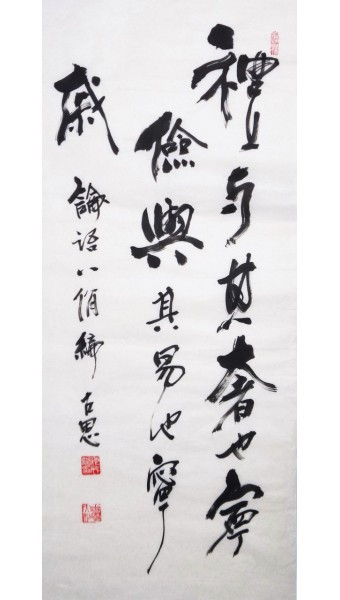 禮与其奢也寧
儉與其易也寧
戚 論語八佾編 古思